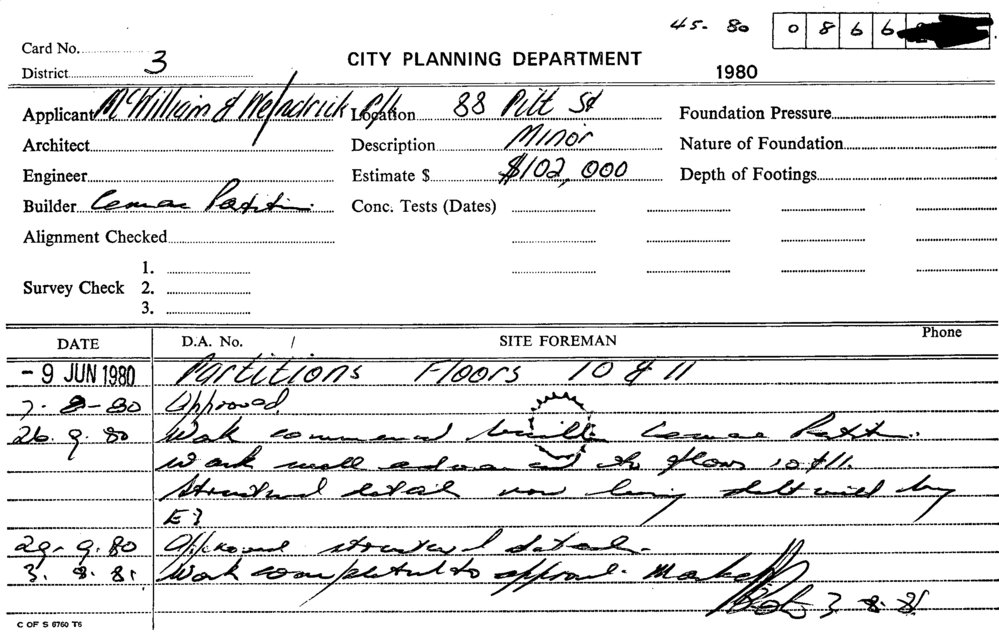 45-80 0 8 6 6
Card No.
District 3
CITY PLANNING DEPARTMENT
1980
Applicant McWilliam & Location 88 Pitt St Foundation Pressure
Architect Description Minor Nature of Foundation
Engineer Estimate $ $102,000 Depth of Footings
Builder Conc. Tests (Dates)
Alignment Checked
1.
Survey Check 2.
3.
DATE D.A. No. / SITE FOREMAN Phone
- 9 JUN 1980 Partitions Floors 10 & 11
7. 8-80 Approved.
26. 9. 80 Work commenced builder
Work well advanced to floors 10 & 11.
Structural details now being dealt with by
E3
29. 9. 80 Approved structural details.
3. 8. 81. Work completed to approval.
3-8-81
C OF S 6760 T6